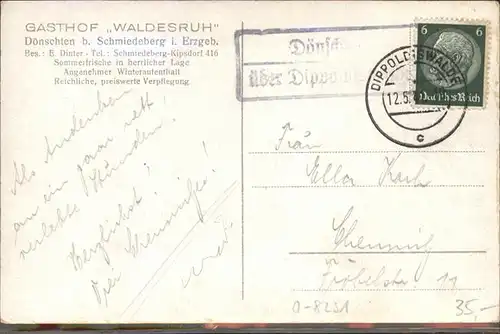 GASTHOF „WALDESRUH"
Dönschten b. Schmiedeberg i. Erzgeb.
Bes.: E. Dinter - Tel.: Schmiedeberg-Kipsdorf 416
Sommerfrische in herrlicher Lage
Angenehmer Winteraufenthalt
Reichliche, preiswerte Verpflegung
über Dippo
DIPPOLDISWALDE
12.5.
c
6 6
Deutsches Reich
Als Andenken
an ein paar nett
verlebte Stunden!
Herzlichst!
Frau
Ella Koch
Chemnitz
Fröbelstr. 11
0-8251
35,-